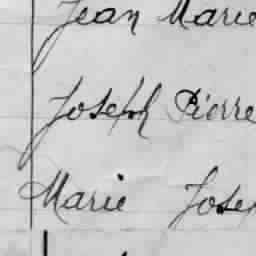 Jean Marie
Joseph Pierre
Marie Josep